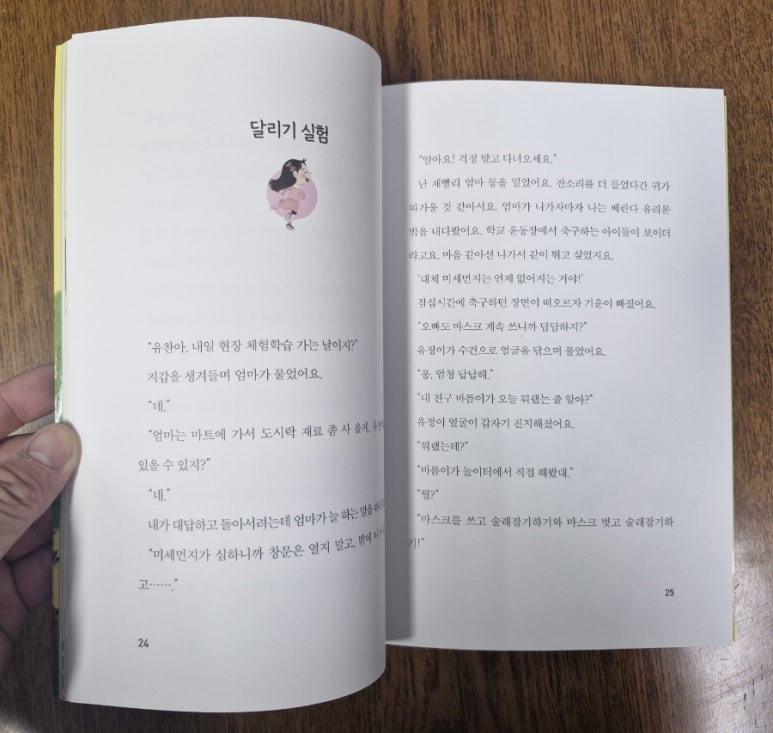 달리기 실험
“유찬아, 내일 현장 체험학습 가는 날이지?”
지갑을 챙겨들며 엄마가 물었어요.
“네.”
“엄마는 마트에 가서 도시락 재료 좀 사 올게.
있을 수 있지?”
“네.”
내가 대답하고 돌아서려는데 엄마가 늘 하는 말을
“미세먼지가 심하니까 창문은 열지 말고, 밖에
고⋯⋯.”
24
“알아요! 걱정 말고 다녀오세요.”
난 재빨리 엄마 등을 밀었어요. 잔소리를 더 들었다간 귀가
따가울 것 같아서요. 엄마가 나가자마자 나는 베란다 유리문
밖을 내다봤어요. 학교 운동장에서 축구하는 아이들이 보이더
라고요. 마음 같아선 나가서 같이 뛰고 싶었지요.
‘대체 미세먼지는 언제 없어지는 거야!’
점심시간에 축구하던 장면이 떠오르자 기운이 빠졌어요.
“오빠도 마스크 계속 쓰니까 답답하지?”
유정이가 수건으로 얼굴을 닦으며 물었어요.
“응, 엄청 답답해.”
“내 친구 바름이가 오늘 뭐했는 줄 알아?”
유정이 얼굴이 갑자기 진지해졌어요.
“뭐했는데?”
“바름이가 놀이터에서 직접 해봤대.”
“뭘?”
“마스크를 쓰고 술래잡기하기와 마스크 벗고 술래잡기하
기!”
25